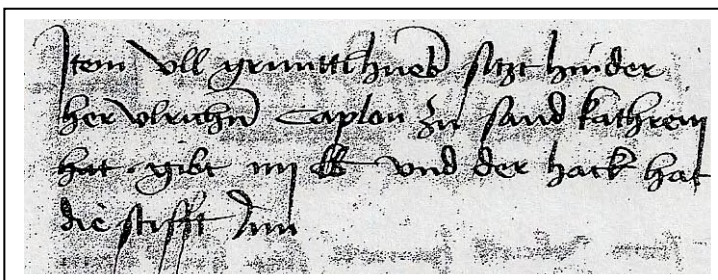 Item Ull grunttihueb sitzt hinder
her ulrichn Caplan zu sand kathrein
hat. gibt iiij und der hack hat
die stifft Inn